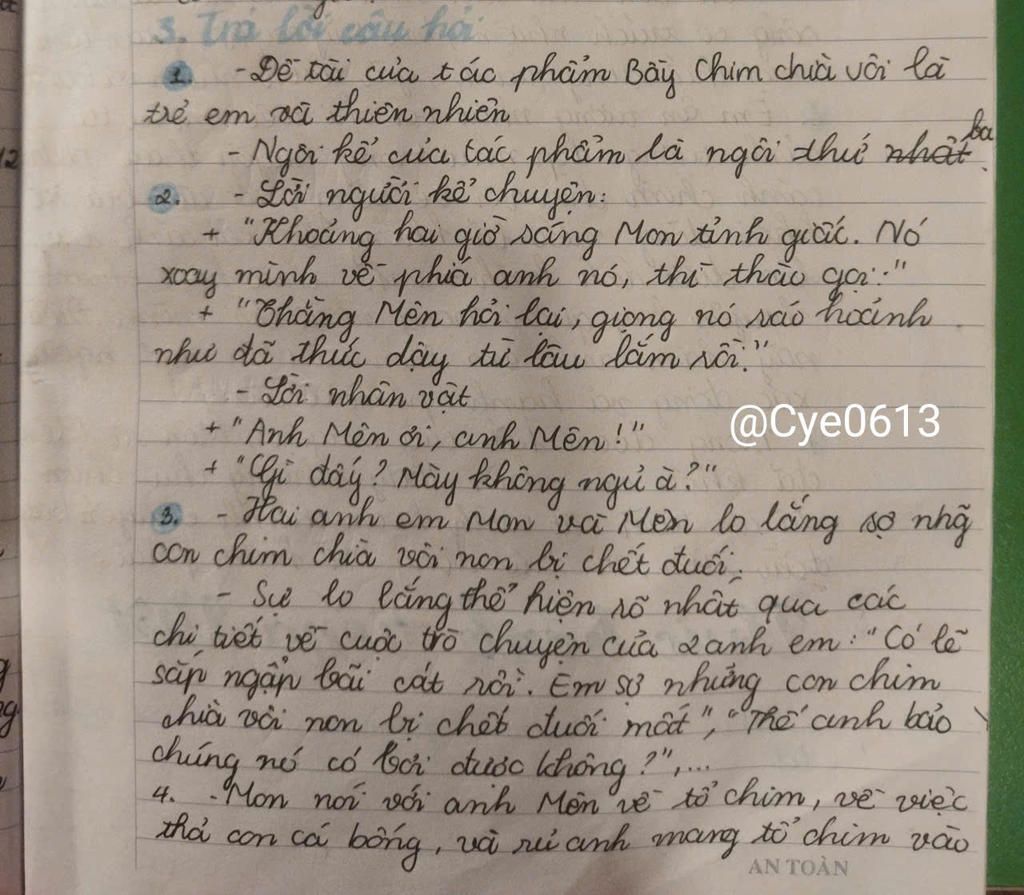 3. Trả lời câu hỏi
1. - Đề tài của tác phẩm Bầy chim chìa vôi là
trẻ em và thiên nhiên
- Ngôi kể của tác phẩm là ngôi thứ nhất ba
2. - Lời người kể chuyện:
+ "Khoảng hai giờ sáng Mon tỉnh giấc. Nó
xoay mình về phía anh nó, thì thào gọi:"
+ "Thằng Mên hỏi lại, giọng nó ráo hoảnh
như đã thức dậy từ lâu lắm rồi."
- Lời nhân vật
+ "Anh Mên ơi, anh Mên!"
@Cye0613
+ "Gì đấy? Mày không ngủ à?"
3. - Hai anh em Mon và Mên lo lắng sợ nhg̃
con chim chìa vôi non bị chết đuối.
- Sự lo lắng thể hiện rõ nhất qua các
chi tiết về cuộc trò chuyện của 2 anh em: "Có lẽ
sắp ngập bãi cát rồi. Em sợ những con chim
chìa vôi non bị chết đuối mất", "Thế anh bảo
chúng nó có bơi được không?",...
4. - Mon nói với anh Mên về tổ chim, về việc
thả con cá bống, và rủ anh mang tổ chim vào
AN TOÀN